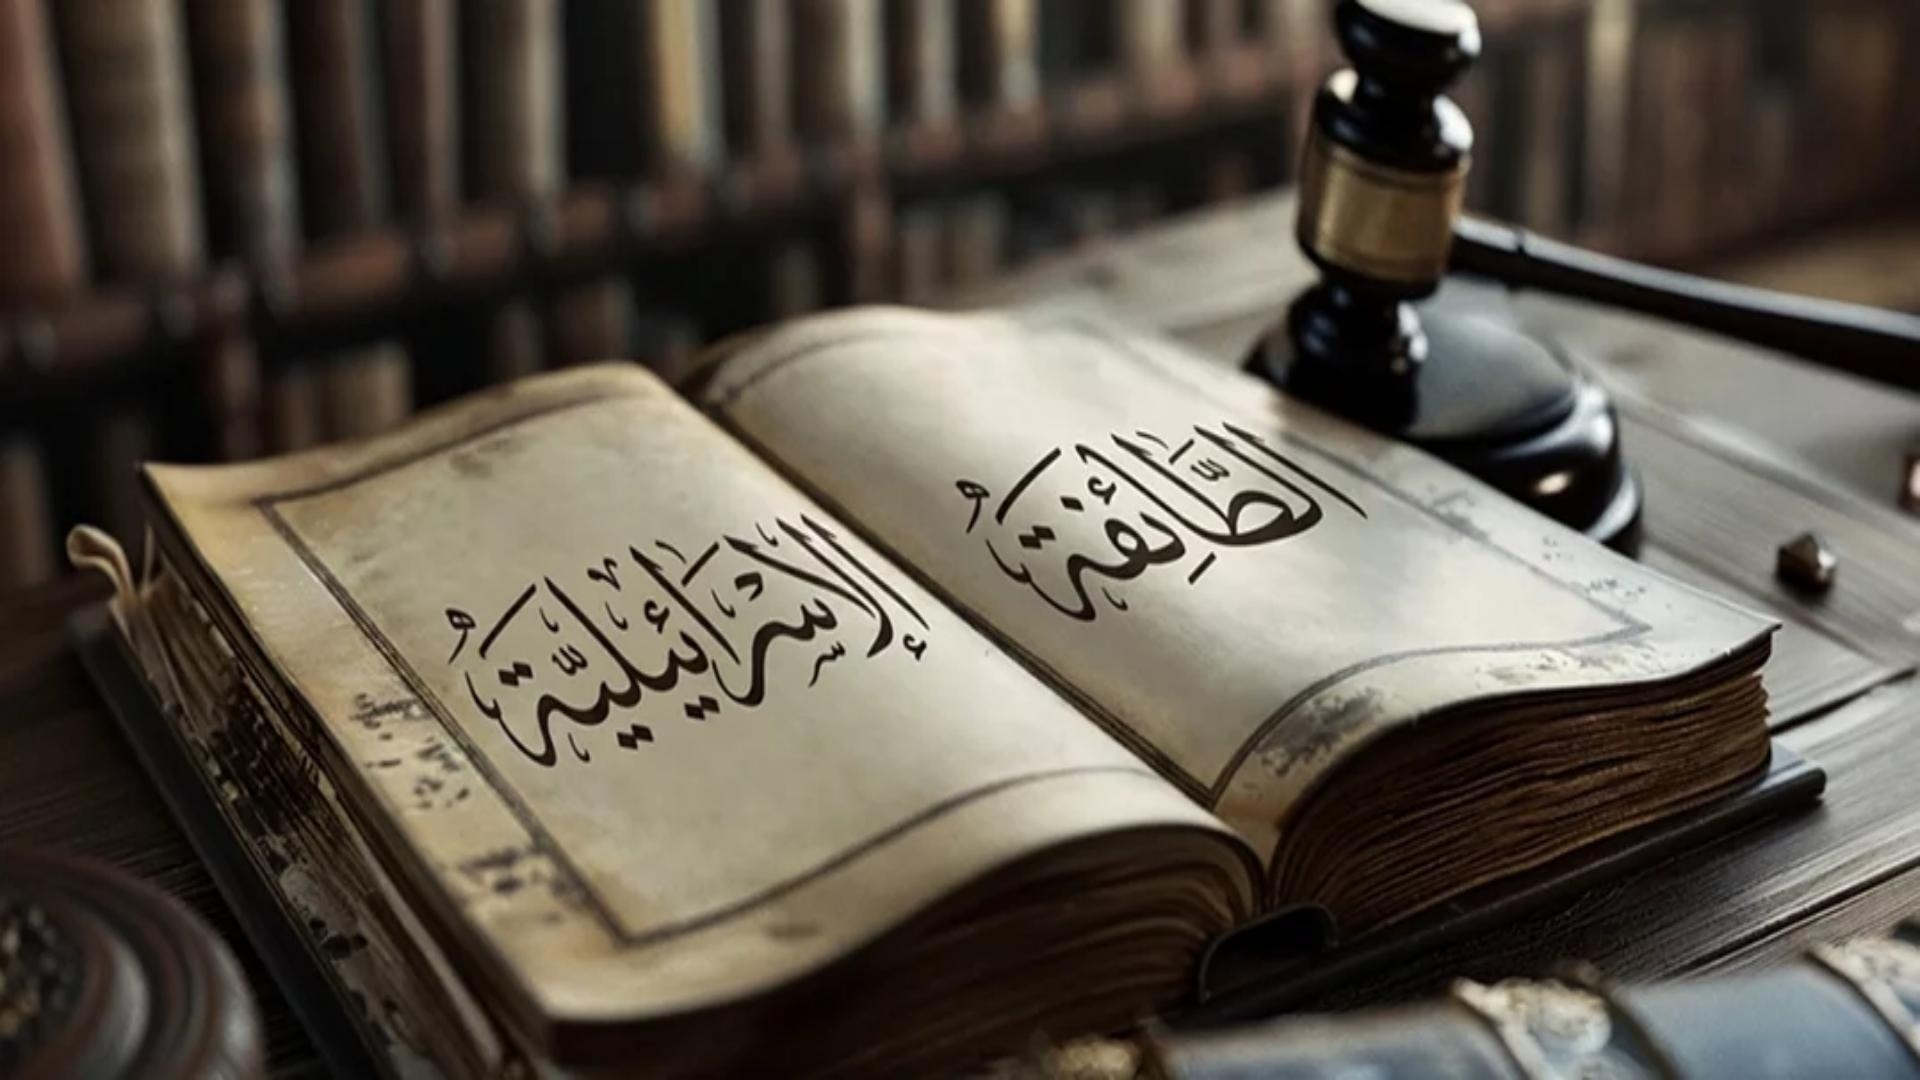 الطَّائِفَة
الإِسْرَائِيلِيَّة